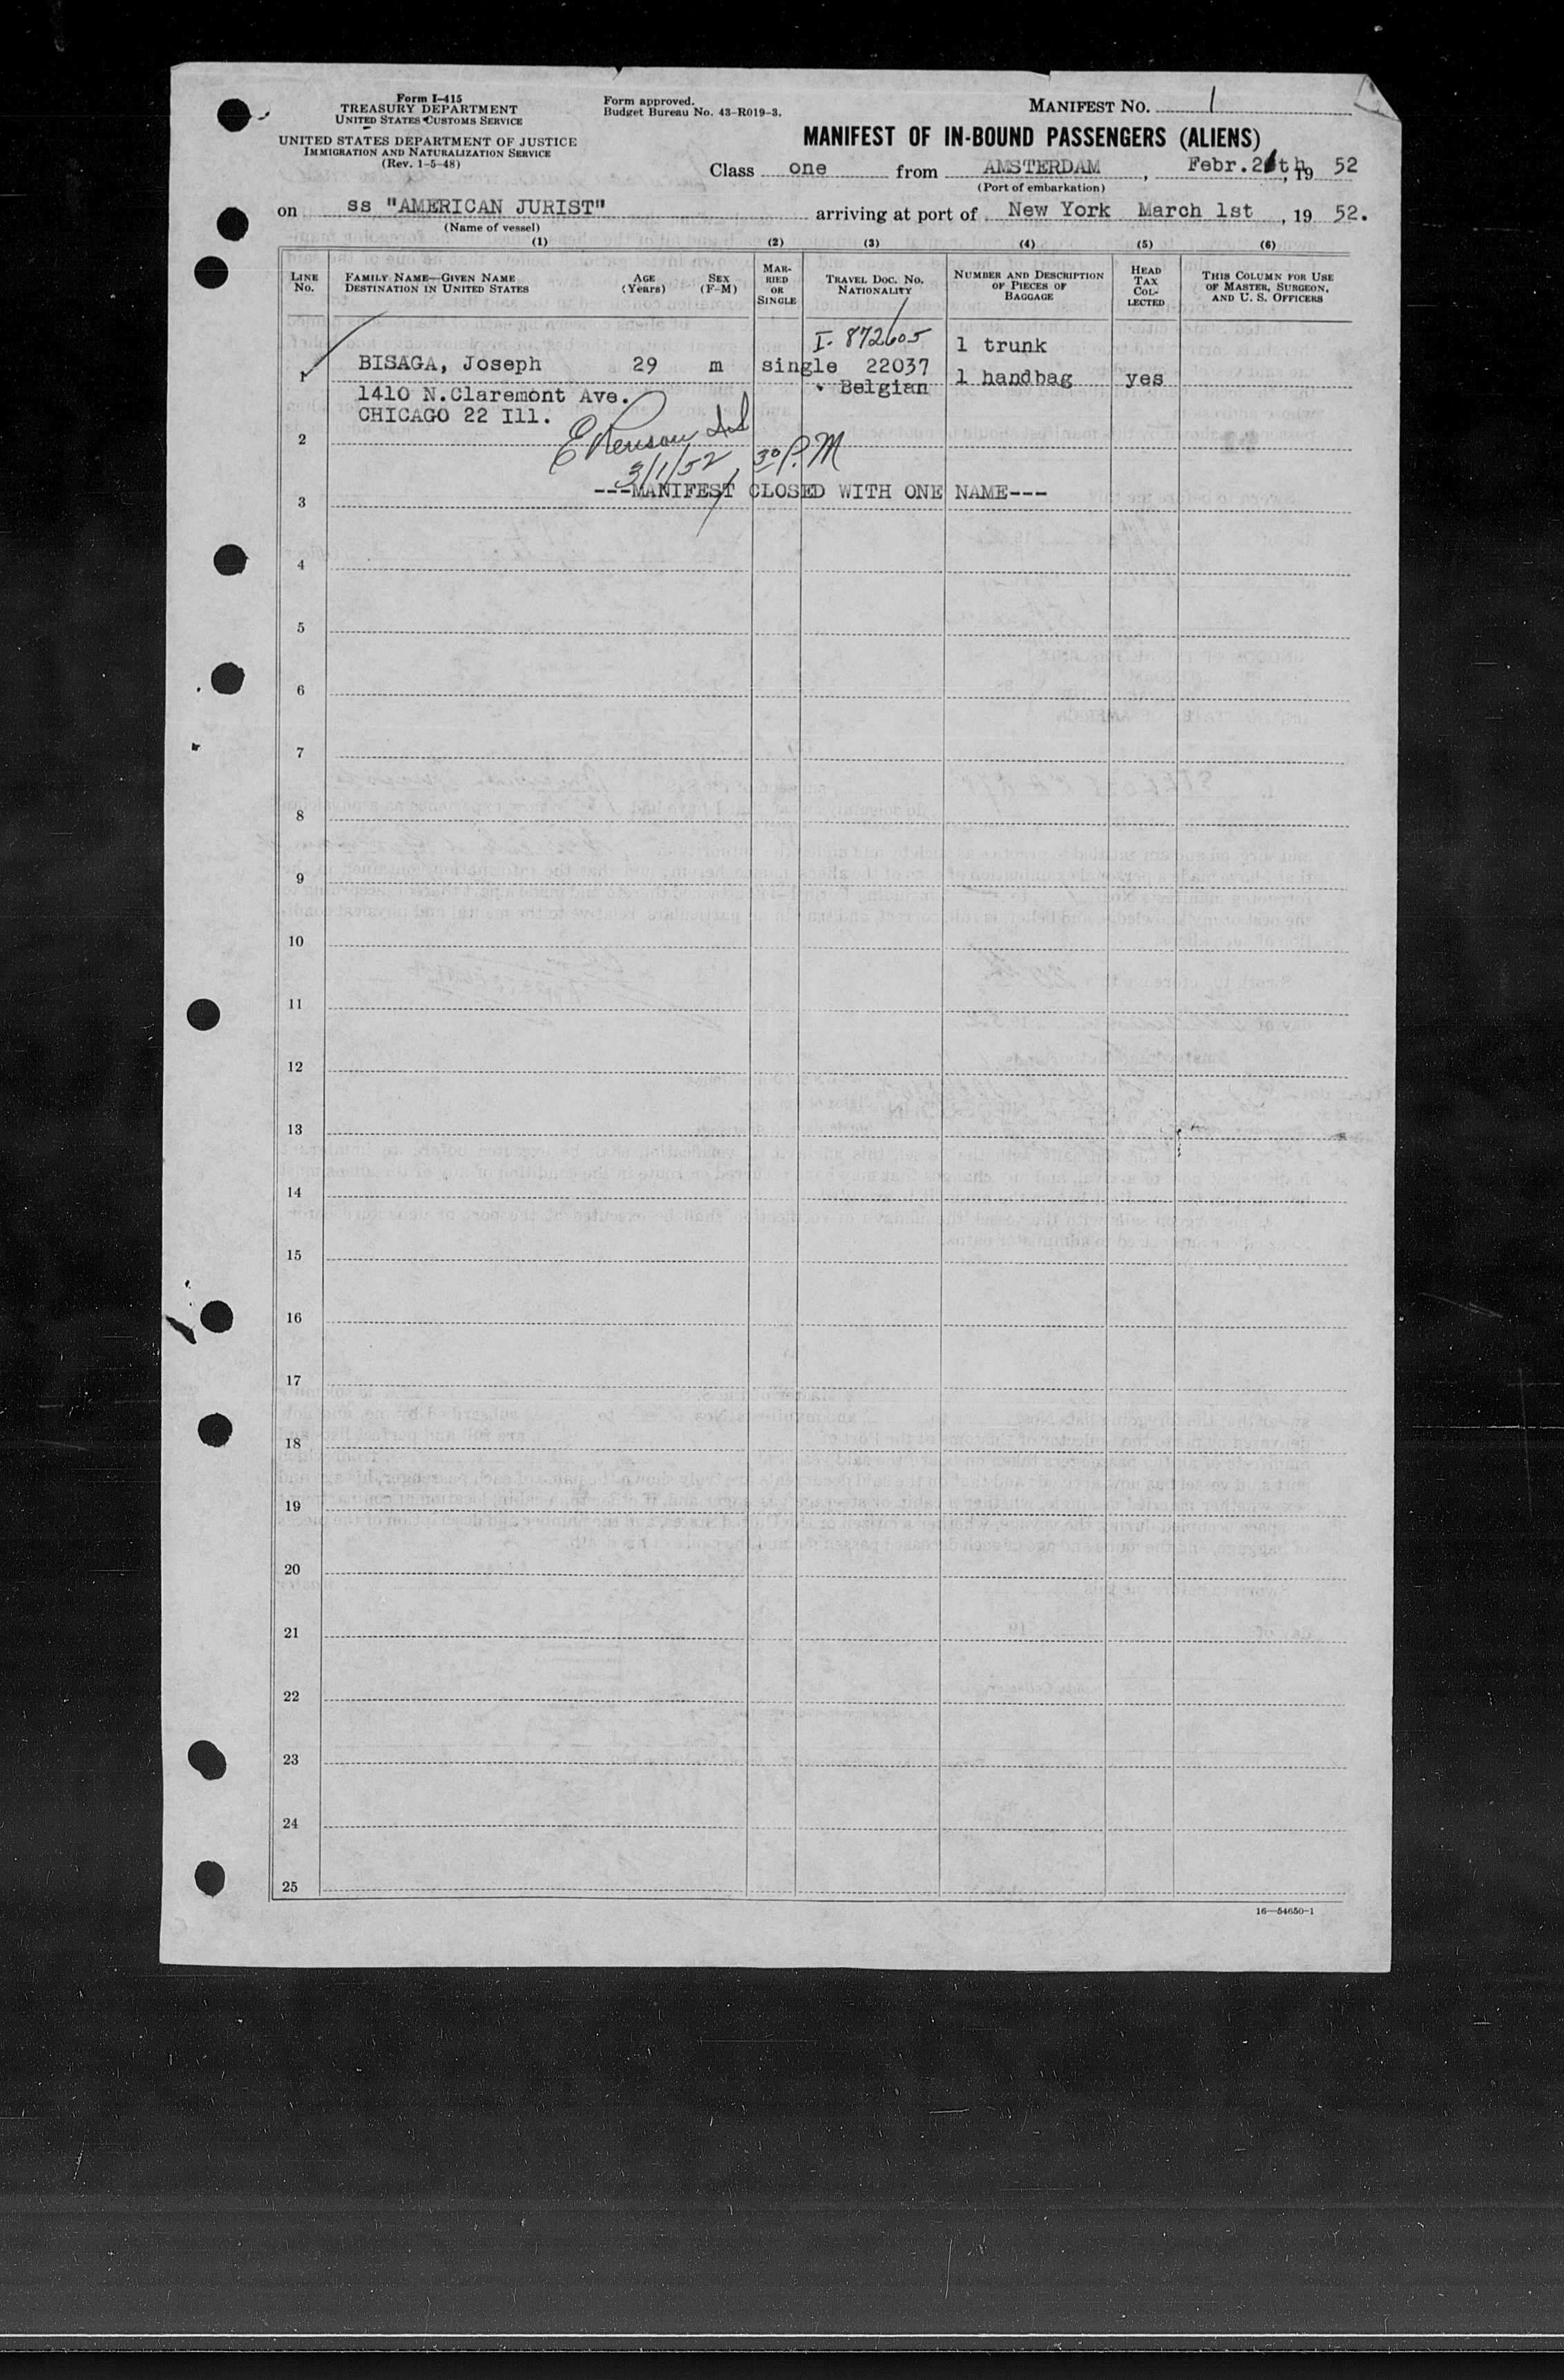 Form I-415
TREASURY DEPARTMENT
UNITED STATES CUSTOMS SERVICE
UNITED STATES DEPARTMENT OF JUSTICE
IMMIGRATION AND NATURALIZATION SERVICE
(Rev. 1-5-48)
Form approved.
Budget Bureau No. 43-R019-3.
MANIFEST NO. 1
MANIFEST OF IN-BOUND PASSENGERS (ALIENS)
Class one from AMSTERDAM, Febr. th, 19 52
(Port of embarkation)
on ss "AMERICAN JURIST" arriving at port of New York March 1st, 19 52.
(Name of vessel)
(1) (2) (3) (4) (5) (6)
LINE No. FAMILY NAME—GIVEN NAME DESTINATION IN UNITED STATES AGE (Years) SEX (F-M) MARRIED OR SINGLE TRAVEL DOC. NO. NATIONALITY NUMBER AND DESCRIPTION OF PIECES OF BAGGAGE HEAD TAX COLLECTED THIS COLUMN FOR USE OF MASTER, SURGEON, AND U. S. OFFICERS
I. 872605 1 trunk
1 BISAGA, Joseph 29 m single 22037
Belgian 1 handbag yes
1410 N.Claremont Ave.
CHICAGO 22 Ill.
2
3/1/52, 30 P.M
---MANIFEST CLOSED WITH ONE NAME---
3
4
5
6
7
8
9
10
11
12
13
14
15
16
17
18
19
20
21
22
23
24
25
16—54650-1